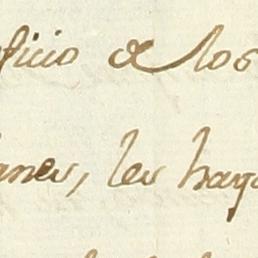 ficio de los
anes, les haya